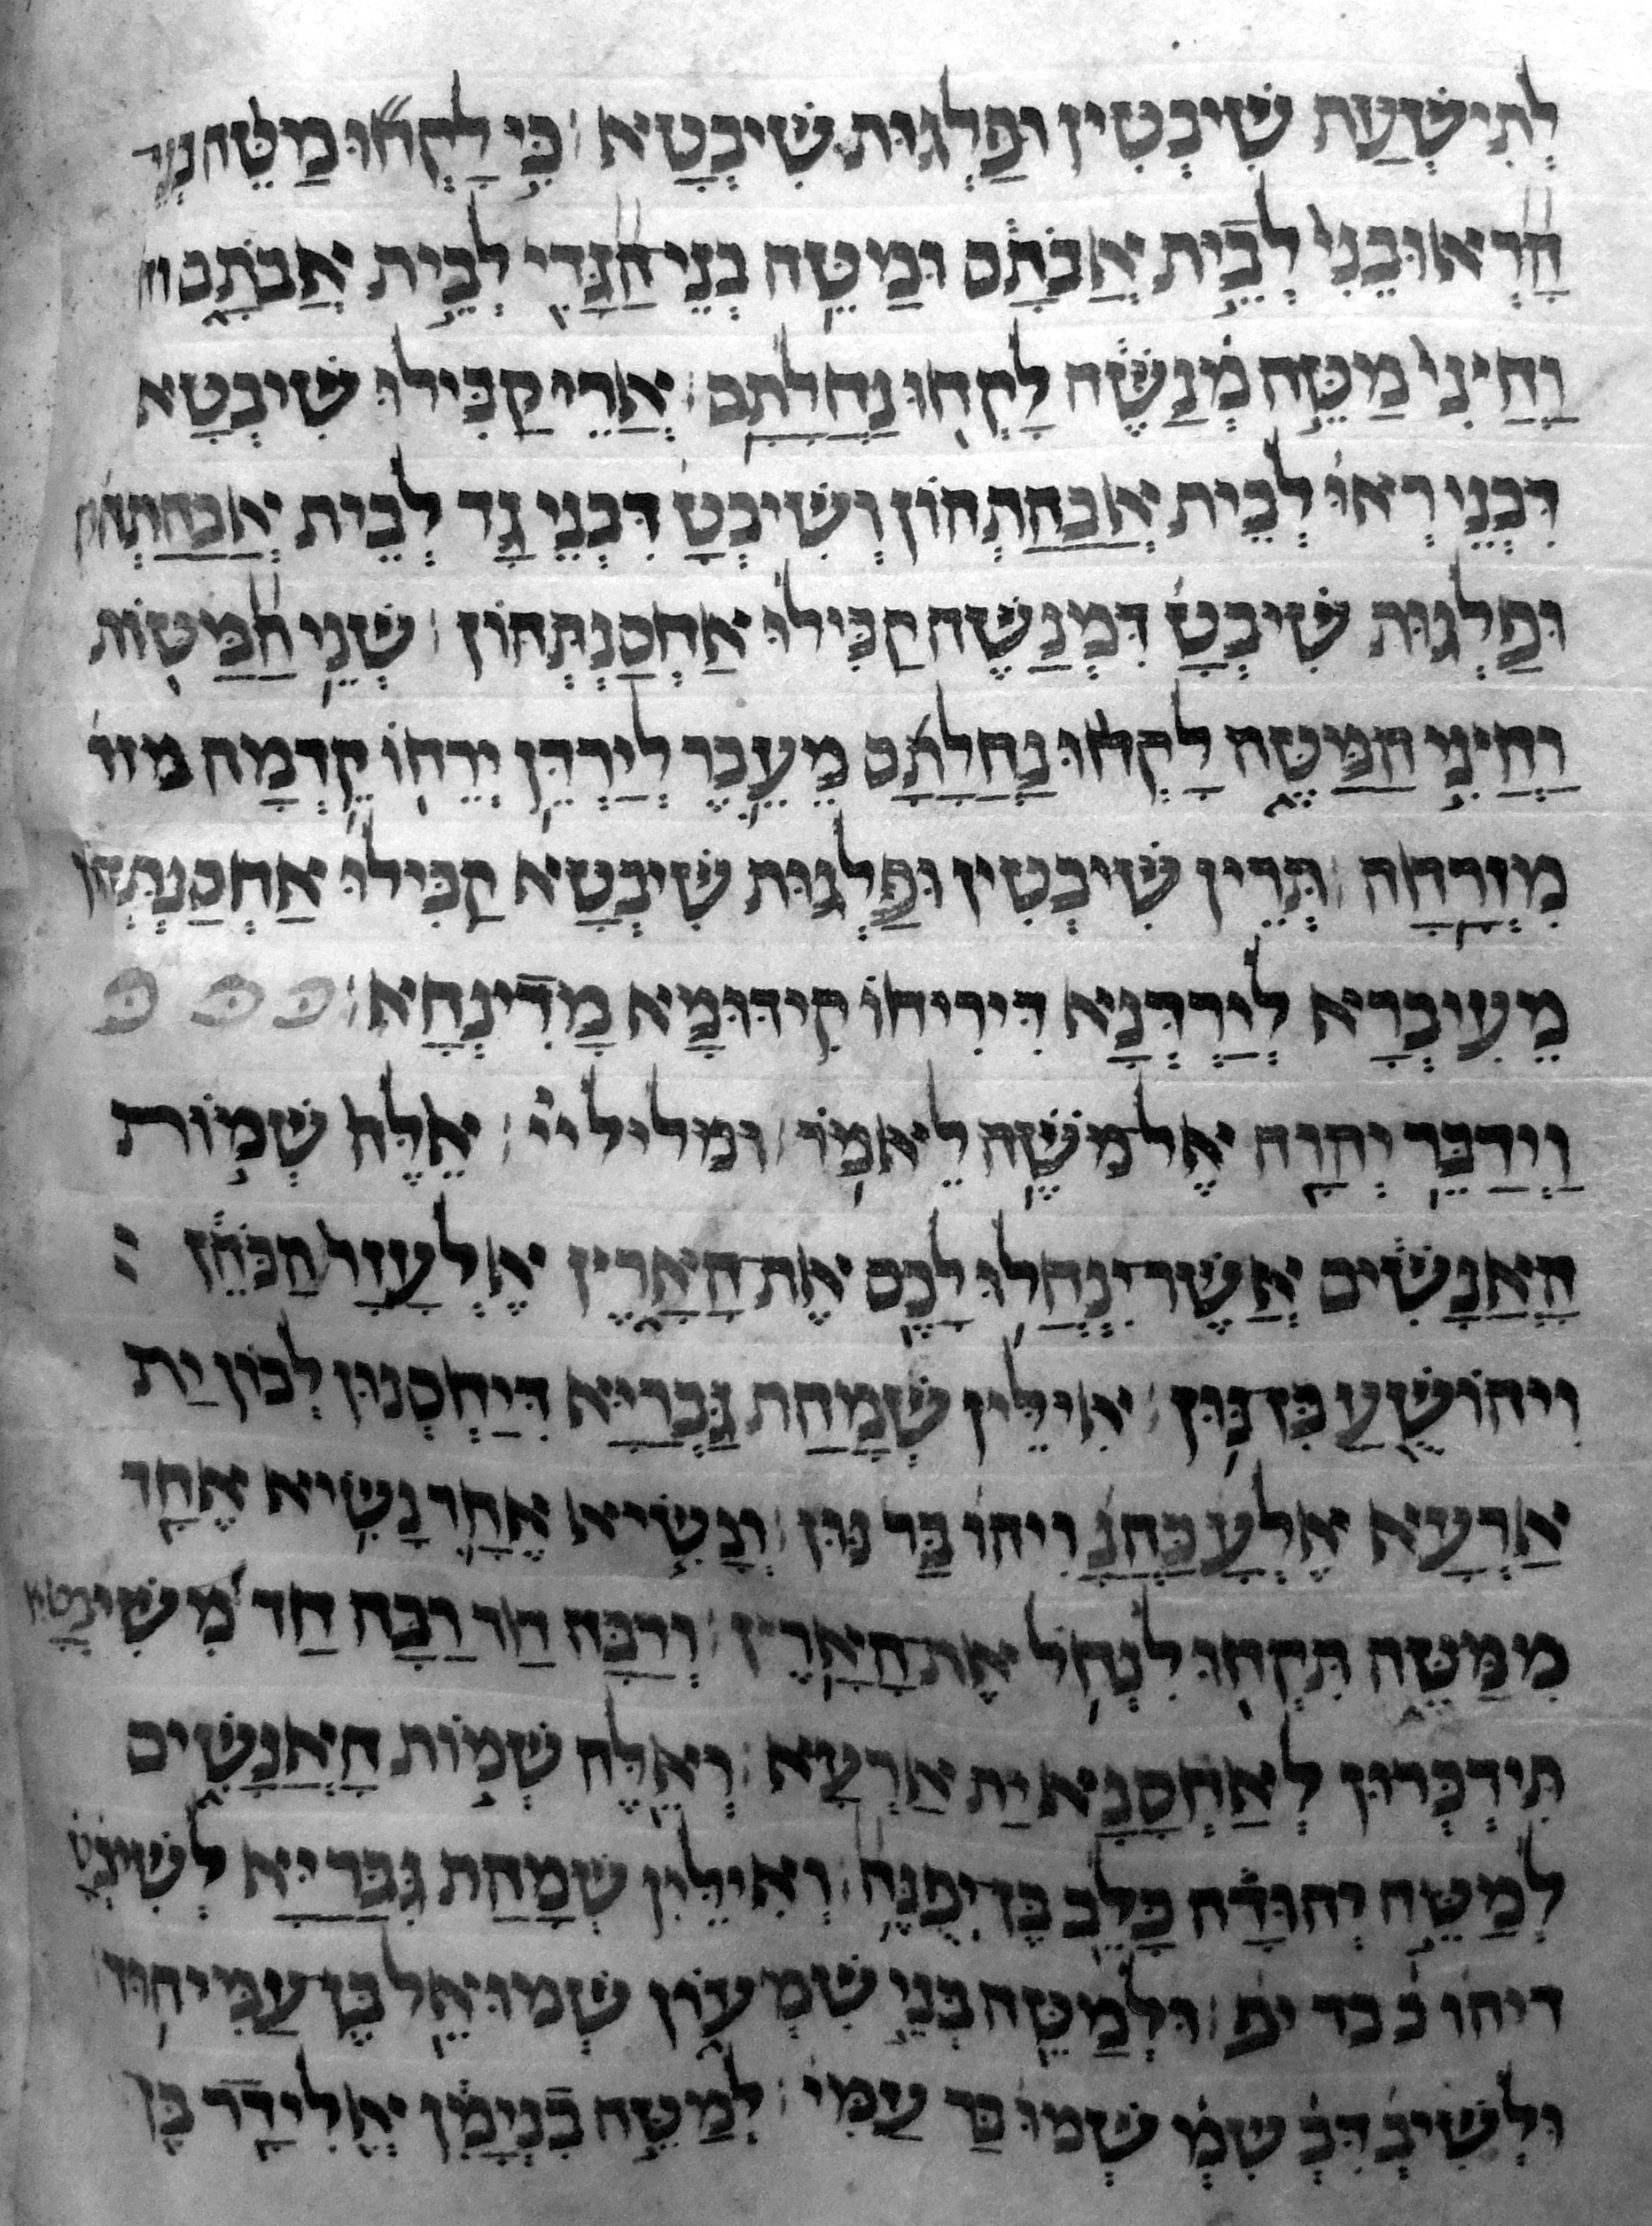 לְתִישְׁעַת שִׁיבְטִין וּפַלְגוּת שִׁיבְטָא ׃ כִּי לָקְחוּ מַטֵּה בְנֵי
הָרְאוּבֵנִי לְבֵית אֲבֹתָם וּמַטֵּה בְנֵי הַגָּדִי לְבֵית אֲבֹתָם
וַחֲצִי מַטֵּה מְנַשֶּׁה לָקְחוּ נַחֲלָתָם ׃ אֲרֵי קַבִּילוּ שִׁיבְטָא
דִּבְנֵי רְאוּ לְבֵית אֲבַהַתְהוֹן וְשִׁיבְטָ דִּבְנֵי גָד לְבֵית אֲבַהַתְהוֹן
וּפַלְגוּת שִׁיבְטָ דִּמְנַשֶּׁה קַבִּילוּ אַחְסַנְתְּהוֹן ׃ שְׁנֵי הַמַּטּוֹת
וַחֲצִי הַמַּטֶּה לָקְחוּ נַחֲלָתָם מֵעֵבֶר לְיַרְדֵּן יְרֵחוֹ קֵדְמָה
מִזְרָחָה ׃ תְּרֵין שִׁיבְטִין וּפַלְגוּת שִׁיבְטָא קַבִּילוּ אַחְסַנְתְּהוֹן
מֵעִיבְרָא לְיַרְדְּנָא דִּירִיחוֹ קִידּוּמָא מָדִינְחָא ׃ פ פ פ
וַיְדַבֵּר יְהוָה אֶל מֹשֶׁה לֵּאמֹר ׃ ומליל יי ׃ אֵלֶּה שְׁמוֹת
הָאֲנָשִׁים אֲשֶׁר יִנְחֲלוּ לָכֶם אֶת הָאָרֶץ אֶלְעָזָר הַכֹּהֵן ׃
וִיהוֹשֻׁעַ בִּן נוּן ׃ אִילֵּין שְׁמָהַת גֻּבְרַיָּא דִּיַחְסְנוּן לְכוֹן יַת
אַרְעָא אֶלְעָ כָּהֲנָ וִיהוֹ בַּר נוּן ׃ וְנָשִׂיא אֶחָד נָשִׂיא אֶחָד
מִמַּטֶּה תִּקְחוּ לִנְחֹל אֶת הָאָרֶץ ׃ וְרַבָּה חַד רַבָּה חַד מִשִּׁיבְטָא
תִּידְבְּרוּן לְאַחְסָנָא יַת אַרְעָא ׃ וְאֵלֶּה שְׁמוֹת הָאֲנָשִׁים
לְמַטֵּה יְהוּדָה כָּלֵב בֶּן יְפֻנֶּה ׃ וְאִילֵּין שְׁמָהַת גֻּבְרַיָּא לְשִׁיבְטָ
דיהו כ בר יפ ׃ וּלְמַטֵּה בְּנֵי שִׁמְעוֹן שְׁמוּאֵל בֶּן עַמִּיהוּד
וּלְשִׁיבְ דִּבְ שִׁמְ שְׁמוּ בַּר עַמִּי ׃ לְמַטֵּה בִנְיָמִן אֱלִידָד בֶּן